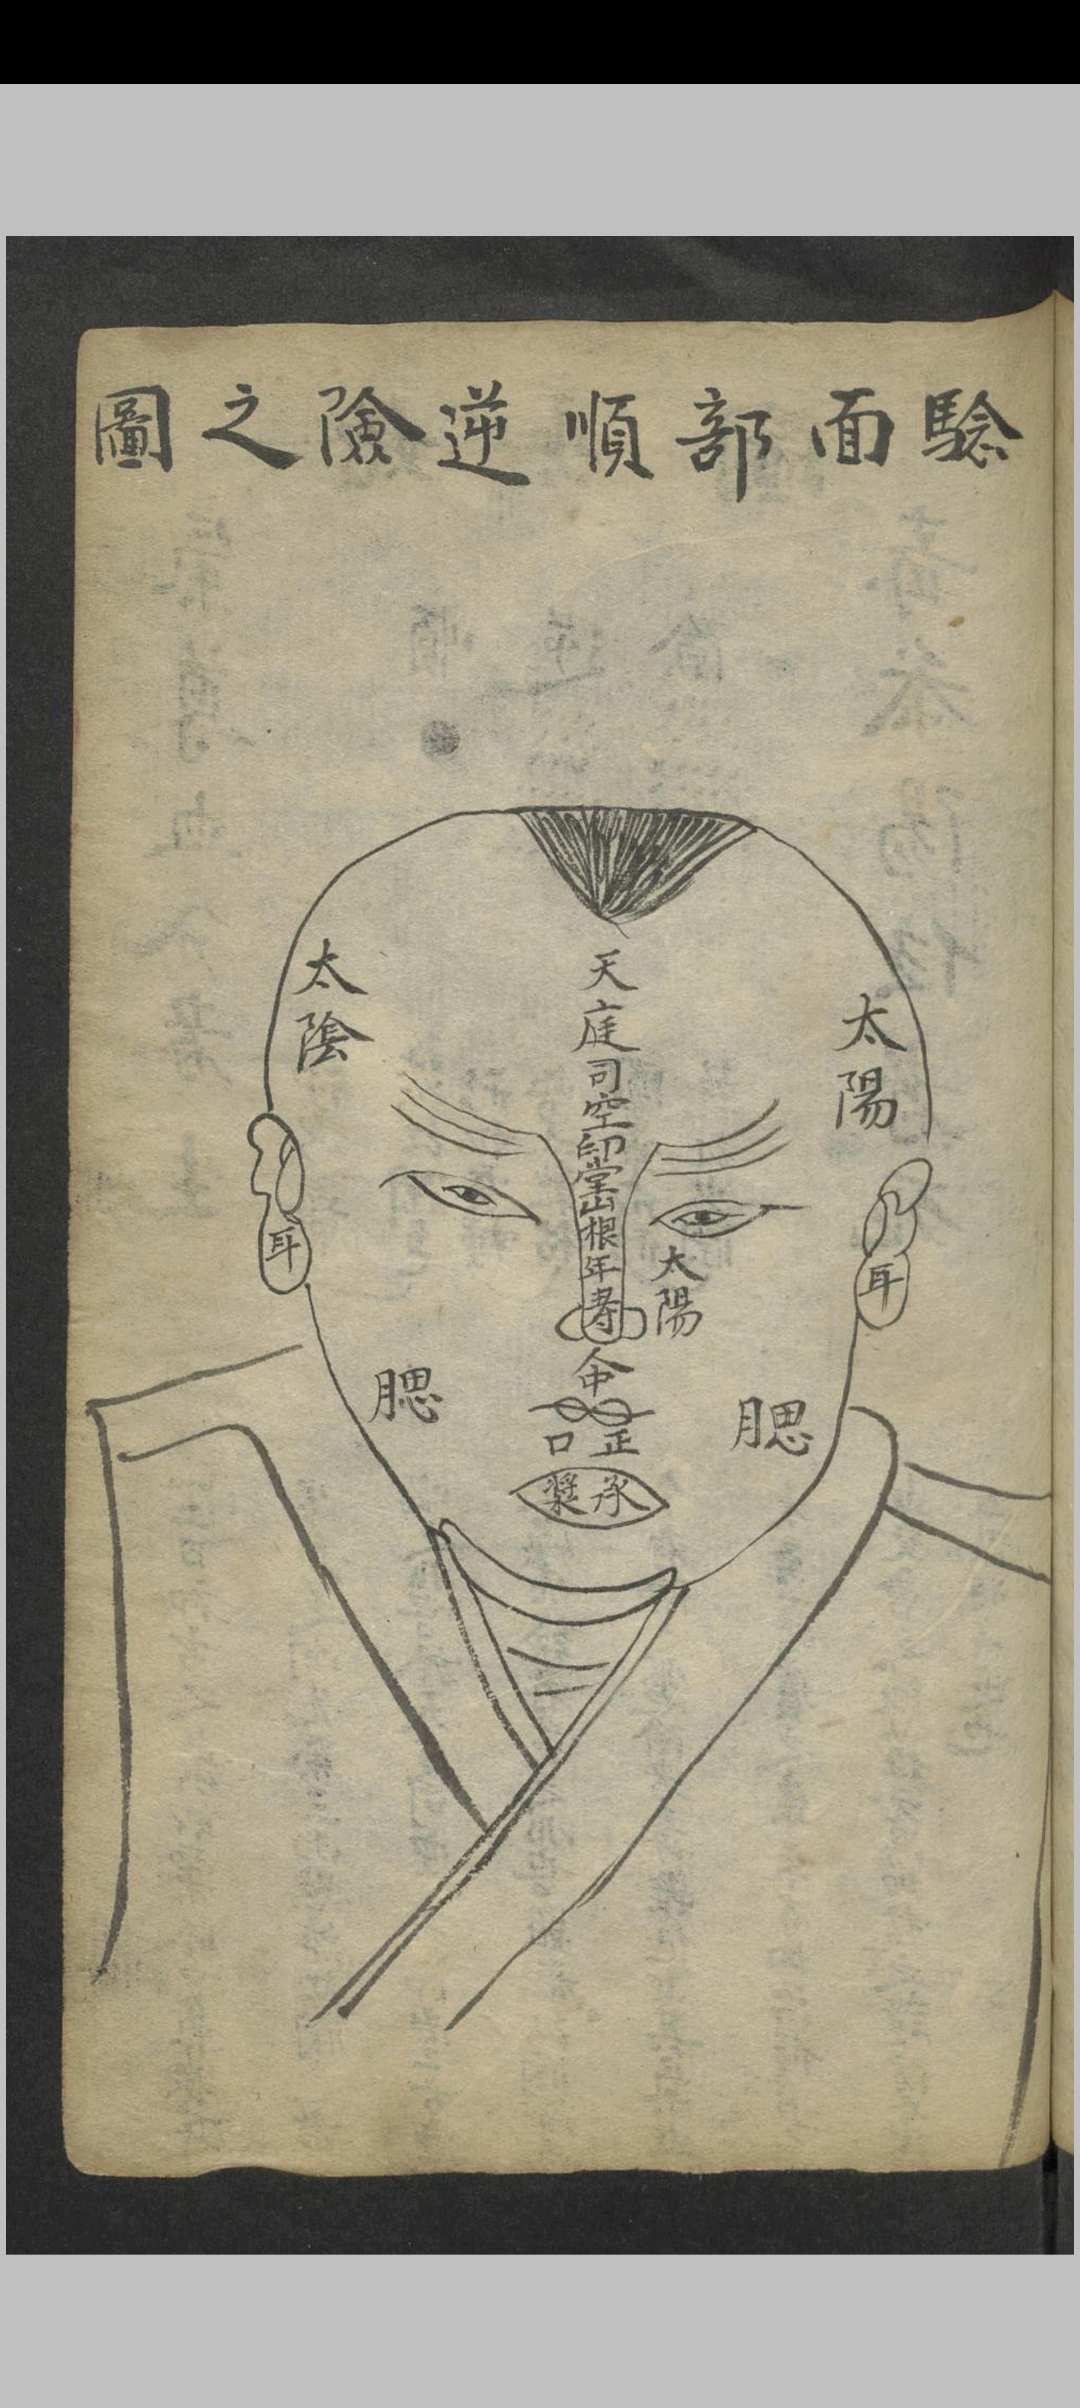 驗面部順逆險之圖
天庭
司空
印堂
山根
年寿
人中
正口
承漿
太陽
太陰
太陽
耳
耳
腮
腮